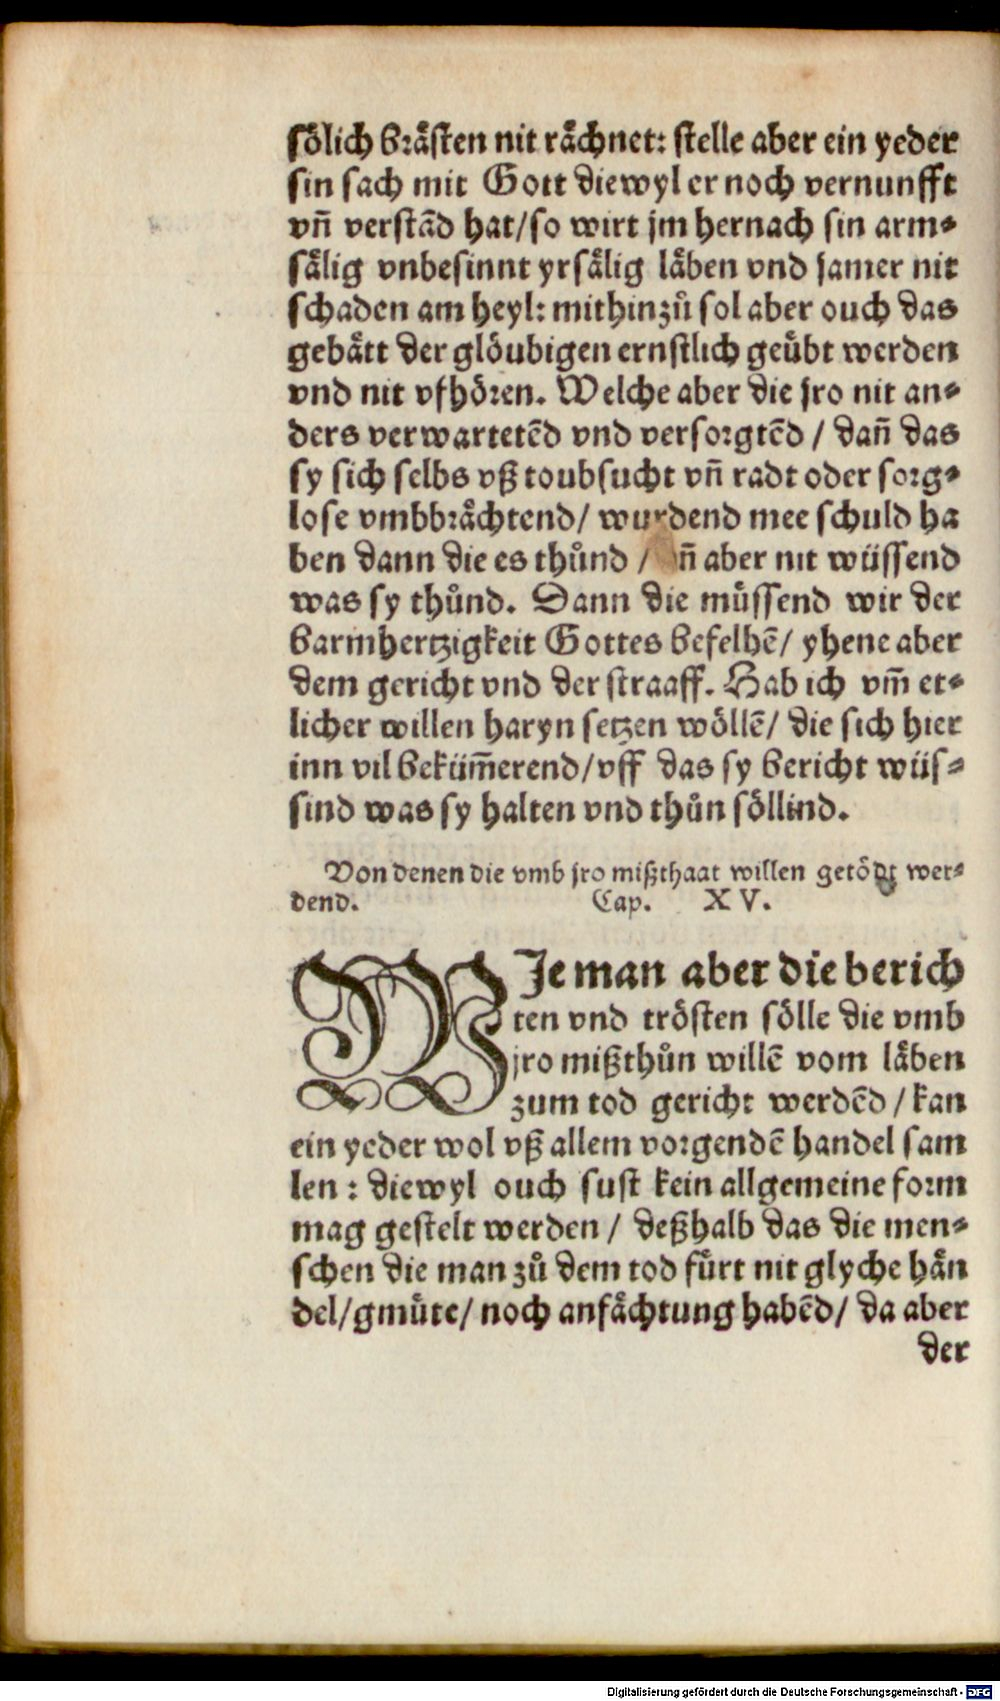 sölich brästen nit rächnet: stelle aber ein yeder
sin sach mit Gott diewyl er noch vernunfft
vñ verstãd hat/so wirt jm hernach sin arm⸗
sälig vnbesinnt yrsälig läben vnd jamer nit
schaden am heyl: mithinzů sol aber ouch das
gebätt der glöubigen ernstlich geübt werden
vnd nit vfhören. Welche aber die jro nit an⸗
ders verwartetēd vnd versorgtēd / dañ das
sy sich selbs vß toubsucht vñ radt oder sorg⸗
lose vmbbrächtend/ wurdend mee schuld ha
ben dann die es thůnd / ñ aber nit wüssend
was sy thůnd. Dann die müssend wir der
barmhertzigkeit Gottes befelhē/ yhene aber
dem gericht vnd der straaff. Hab ich vm̃ et⸗
licher willen haryn setzen wöllē/ die sich hier
inn vil beküm̃erend/vff das sy bericht wüs⸗
sind was sy halten vnd thůn söllind.
Von denen die vmb jro mißthaat willen getödt wer⸗
dend. Cap. XV.
WJe man aber die berich
ten vnd trösten sölle die vmb
jro mißthůn willē vom läben
zum tod gericht werdēd / kan
ein yeder wol vß allem vorgendē handel sam
len : diewyl ouch sust kein allgemeine form
mag gestelt werden / deßhalb das die men⸗
schen die man zů dem tod fürt nit glyche hän
del/gmüte/ noch anfächtung habēd/ da aber
der
Digitalisierung gefördert durch die Deutsche Forschungsgemeinschaft - DFG